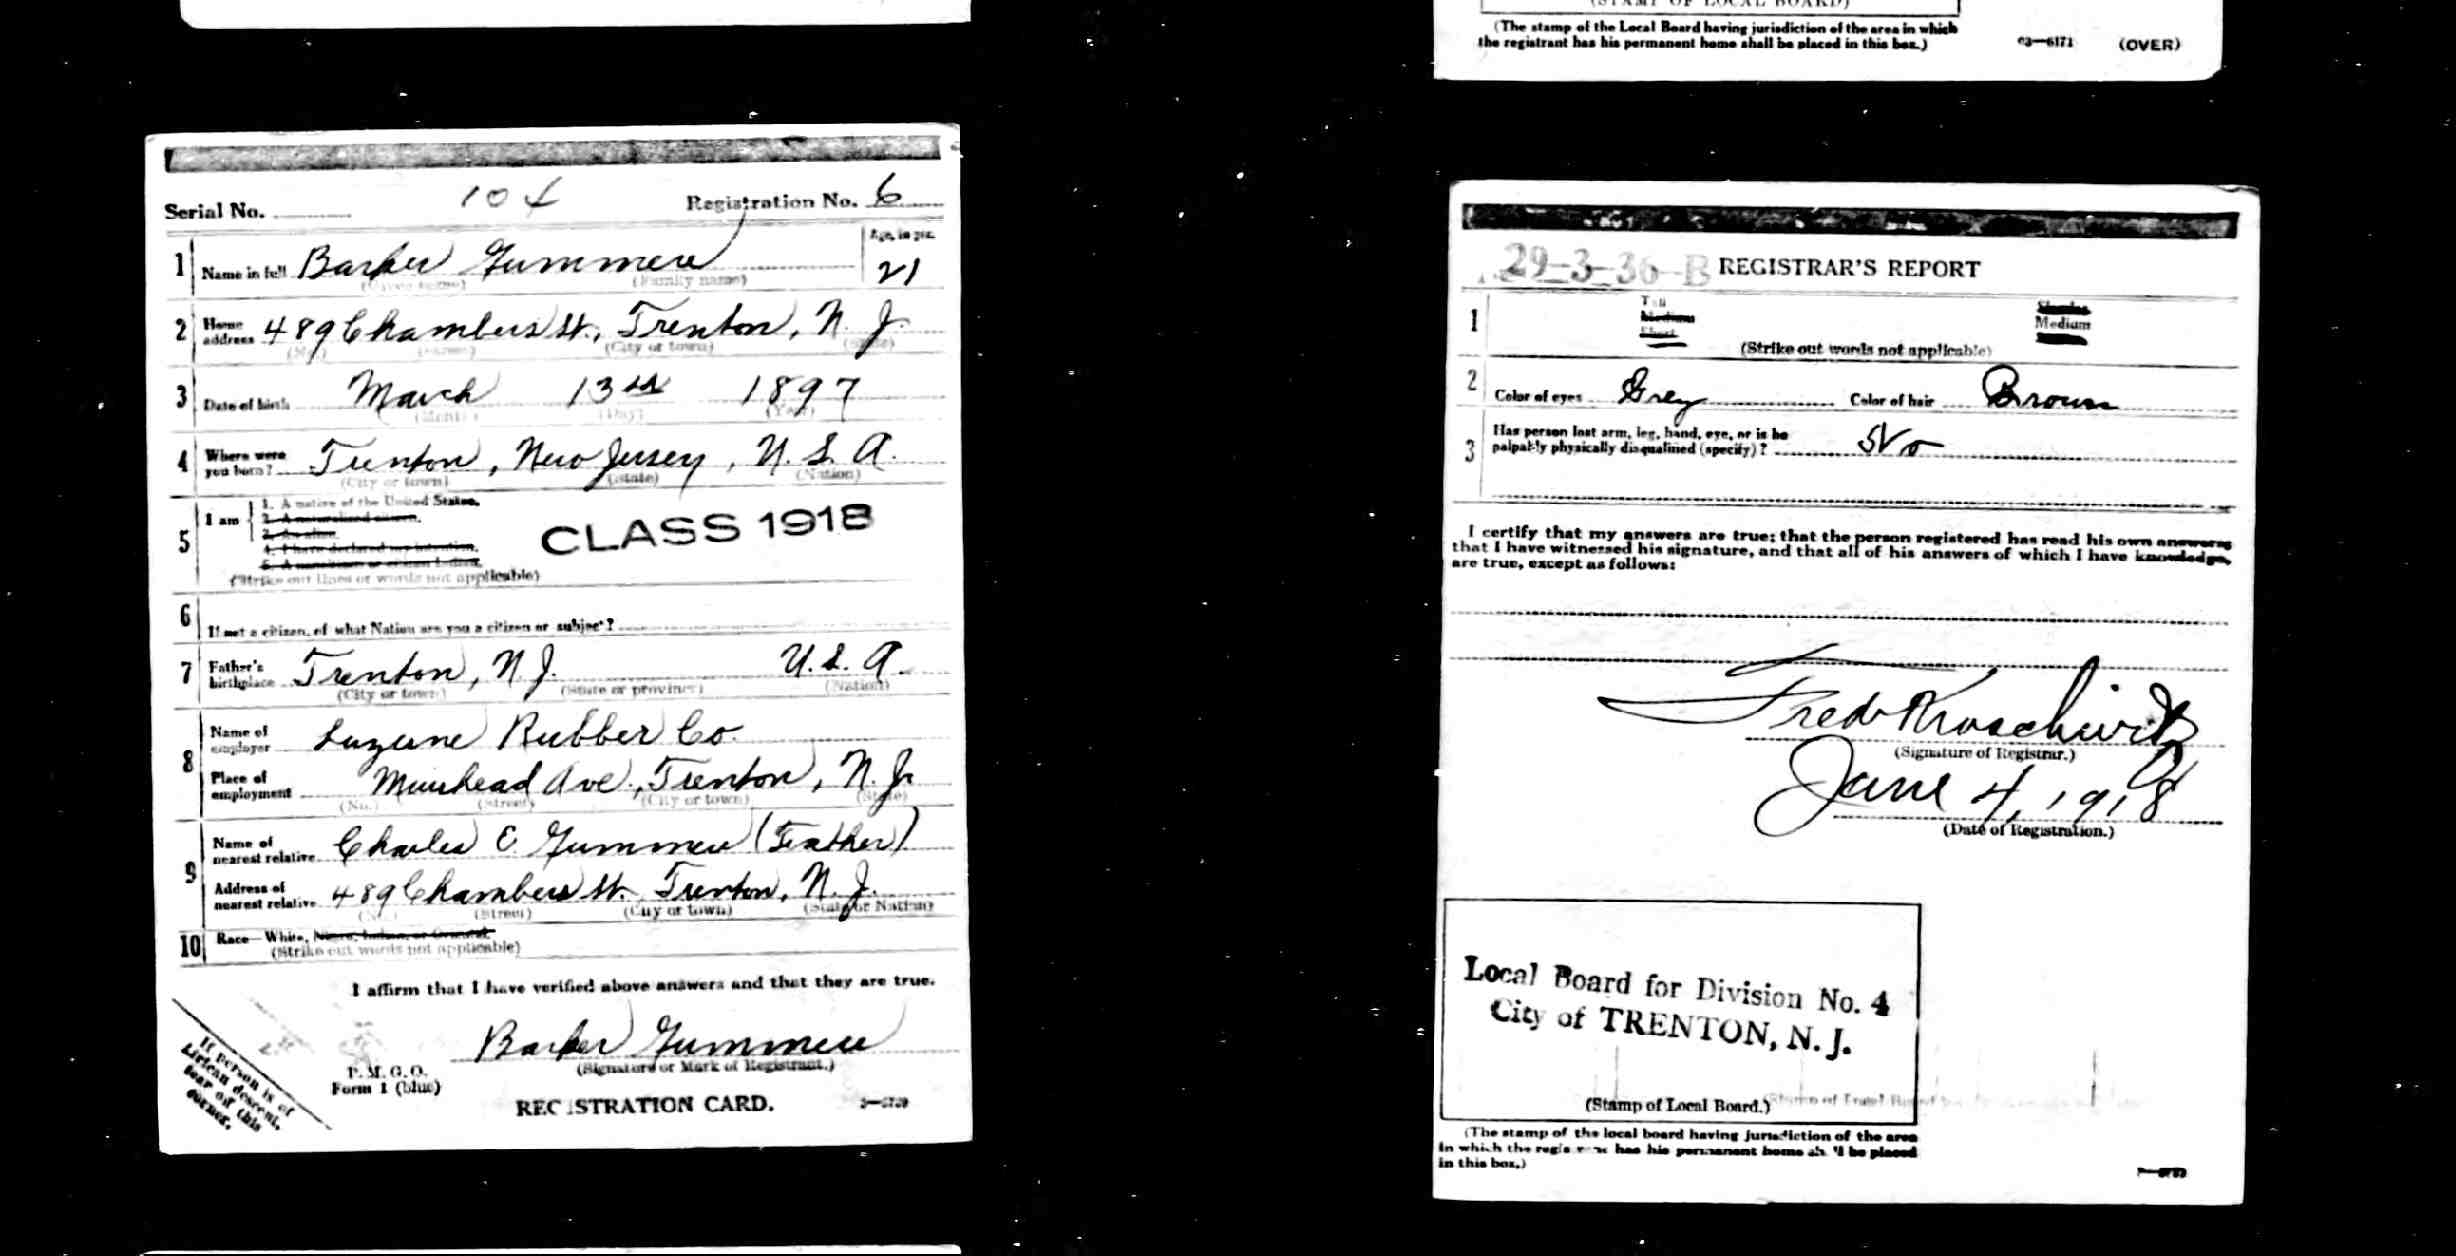 (STAMP OF LOCAL BOARD)
(The stamp of the Local Board having jurisdiction of the area in which
the registrant has his permanent home shall be placed in this box.)
03—6171 (OVER)
Serial No. 104 Registration No. 6
1 Name in full Barker Gummere Age, in yrs. 21
(Given name) (Family name)
2 Home address 489 Chambers St., Trenton, N. J.
(No.) (Street) (City or town) (State)
3 Date of birth March 13th 1897
(Month) (Day) (Year)
4 Where were you born? Trenton, New Jersey, U. S. A.
(City or town) (State) (Nation)
5 I am
1. A native of the United States.
2. A naturalized citizen.
3. An alien.
4. I have declared my intention.
CLASS 1918
(Strike out lines or words not applicable)
6 If not a citizen, of what Nation are you a citizen or subject?
7 Father's birthplace Trenton, N. J. U. S. A.
(City or town) (State or province) (Nation)
8 Name of employer Luzerne Rubber Co.
Place of employment Muirhead Ave., Trenton, N. J.
(No.) (Street) (City or town) (State)
9 Name of nearest relative Charles E Gummere (Father)
Address of nearest relative 489 Chambers St. Trenton, N. J.
(No.) (Street) (City or town) (State or Nation)
10 Race—White, Negro, Indian, or Oriental.
(Strike out words not applicable)
I affirm that I have verified above answers and that they are true.
Barker Gummere
(Signature or Mark of Registrant.)
P. M. G. O.
Form 1 (blue)
REGISTRATION CARD.
If person is of
African descent,
tear off this
corner.
29-3-36-B REGISTRAR'S REPORT
1 Tall Medium Short Slender Medium
(Strike out words not applicable)
2 Color of eyes Grey Color of hair Brown
3 Has person lost arm, leg, hand, eye, or is he
palpably physically disqualified (specify)? No
I certify that my answers are true; that the person registered has read his own answers;
that I have witnessed his signature, and that all of his answers of which I have knowledge,
are true, except as follows:
(Signature of Registrar.)
June 4, 1918
(Date of Registration.)
Local Board for Division No. 4
City of TRENTON, N. J.
(Stamp of Local Board.)
(The stamp of the local board having jurisdiction of the area
in which the registrant has his permanent home shall be placed
in this box.)